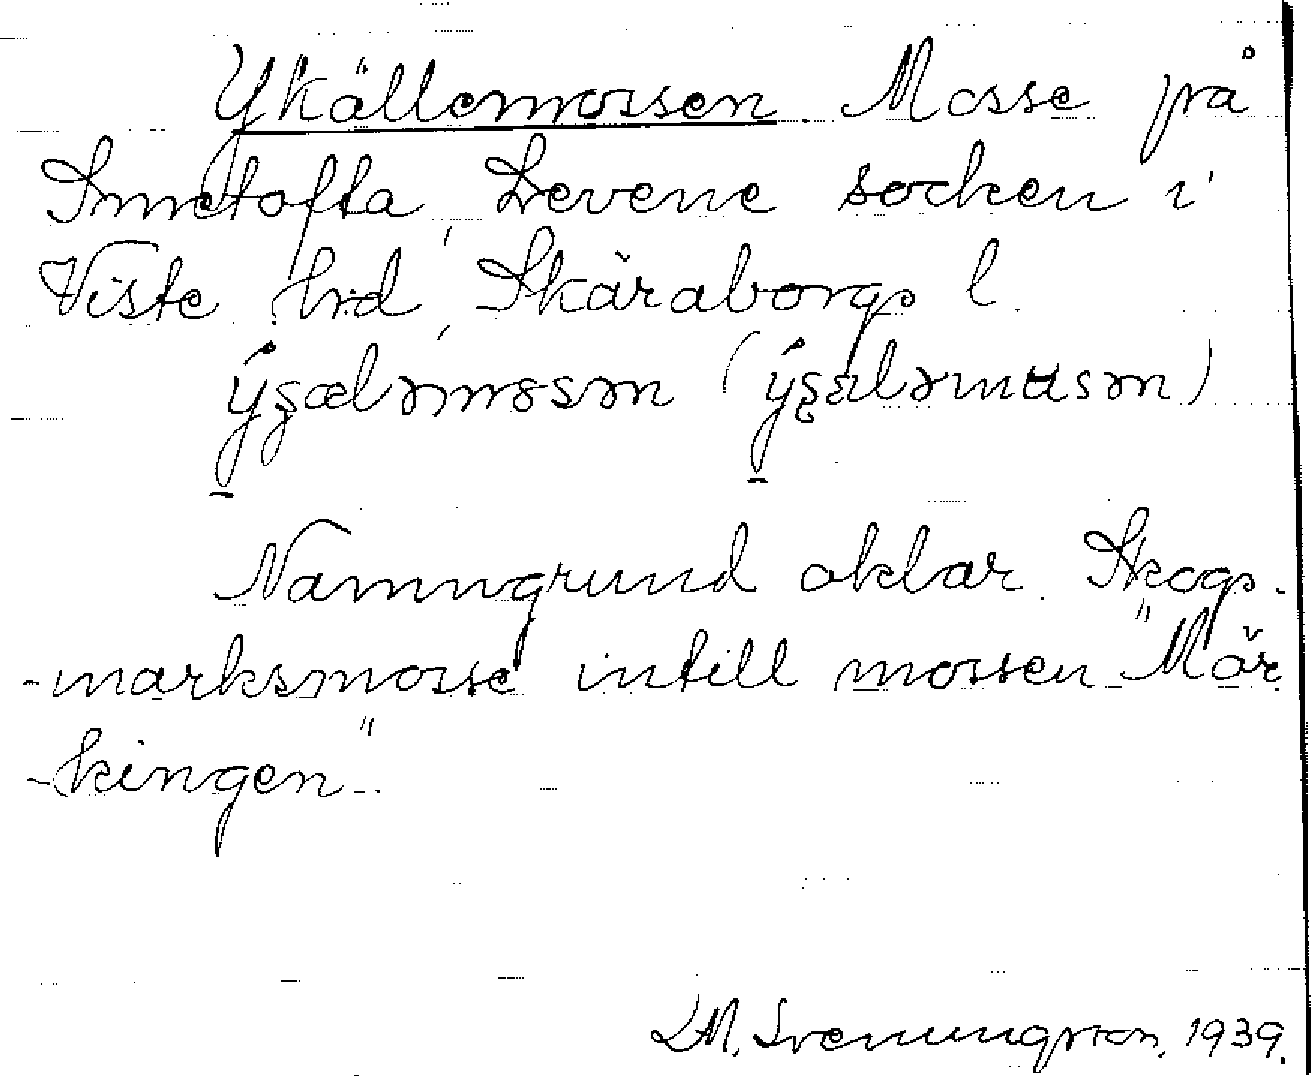 Ykällemossen Mosse på
Smretofta, Levene socken i
Viste hrd, Skaraborgs l.
Namngrund oklar. Skogs-
-marksmosse intill mossen "Mär
-kingen".
L.M. Svenungsson, 1939.